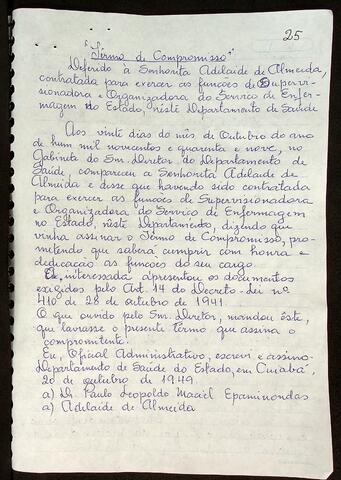 25
"Têrmo de Compromisso"
Deferido à Senhorita Adelaide de Almeida,
contratada para exercer as funcões de Supervi-
sionadora e Organizadora do Servico de Enfer-
magem no Estado, nêste Departamento de Saúde
Aos vinte dias do mês de Outubro do ano
de hum mil novecentos e quarenta e nove, no
Gabinete do Snr. Diretor do Departamento de
Saúde, compareceu a Senhorita Adelaide de
Almeida e disse que havendo sido contratada
para exercer as funcões de Supervisionadora
e Organizadora do Servico de Enfermagem
no Estado, nêste Departamento, dizendo que
vinha assinar o Têrmo de Compromisso, pro-
metendo que saberá cumprir com honra e
dedicacão as funcões do seu cargo.
interessada apresentou os documentos
exigidos pelo Art. 14 do Decreto-Lei nº
410 de 28 de outubro de 1941.
O que ouvido pelo Snr. Diretor, mandou êste,
que lavrasse o presente têrmo que assina o
compromitente.
Eu, Oficial Administrativo, escrevi e assino.
Departamento de Saúde do Estado, em Cuiabá,
20 de outubro de 1949.
a) Dr. Paulo Leopoldo Maciel Epaminondas
a) Adelaide de Almeida